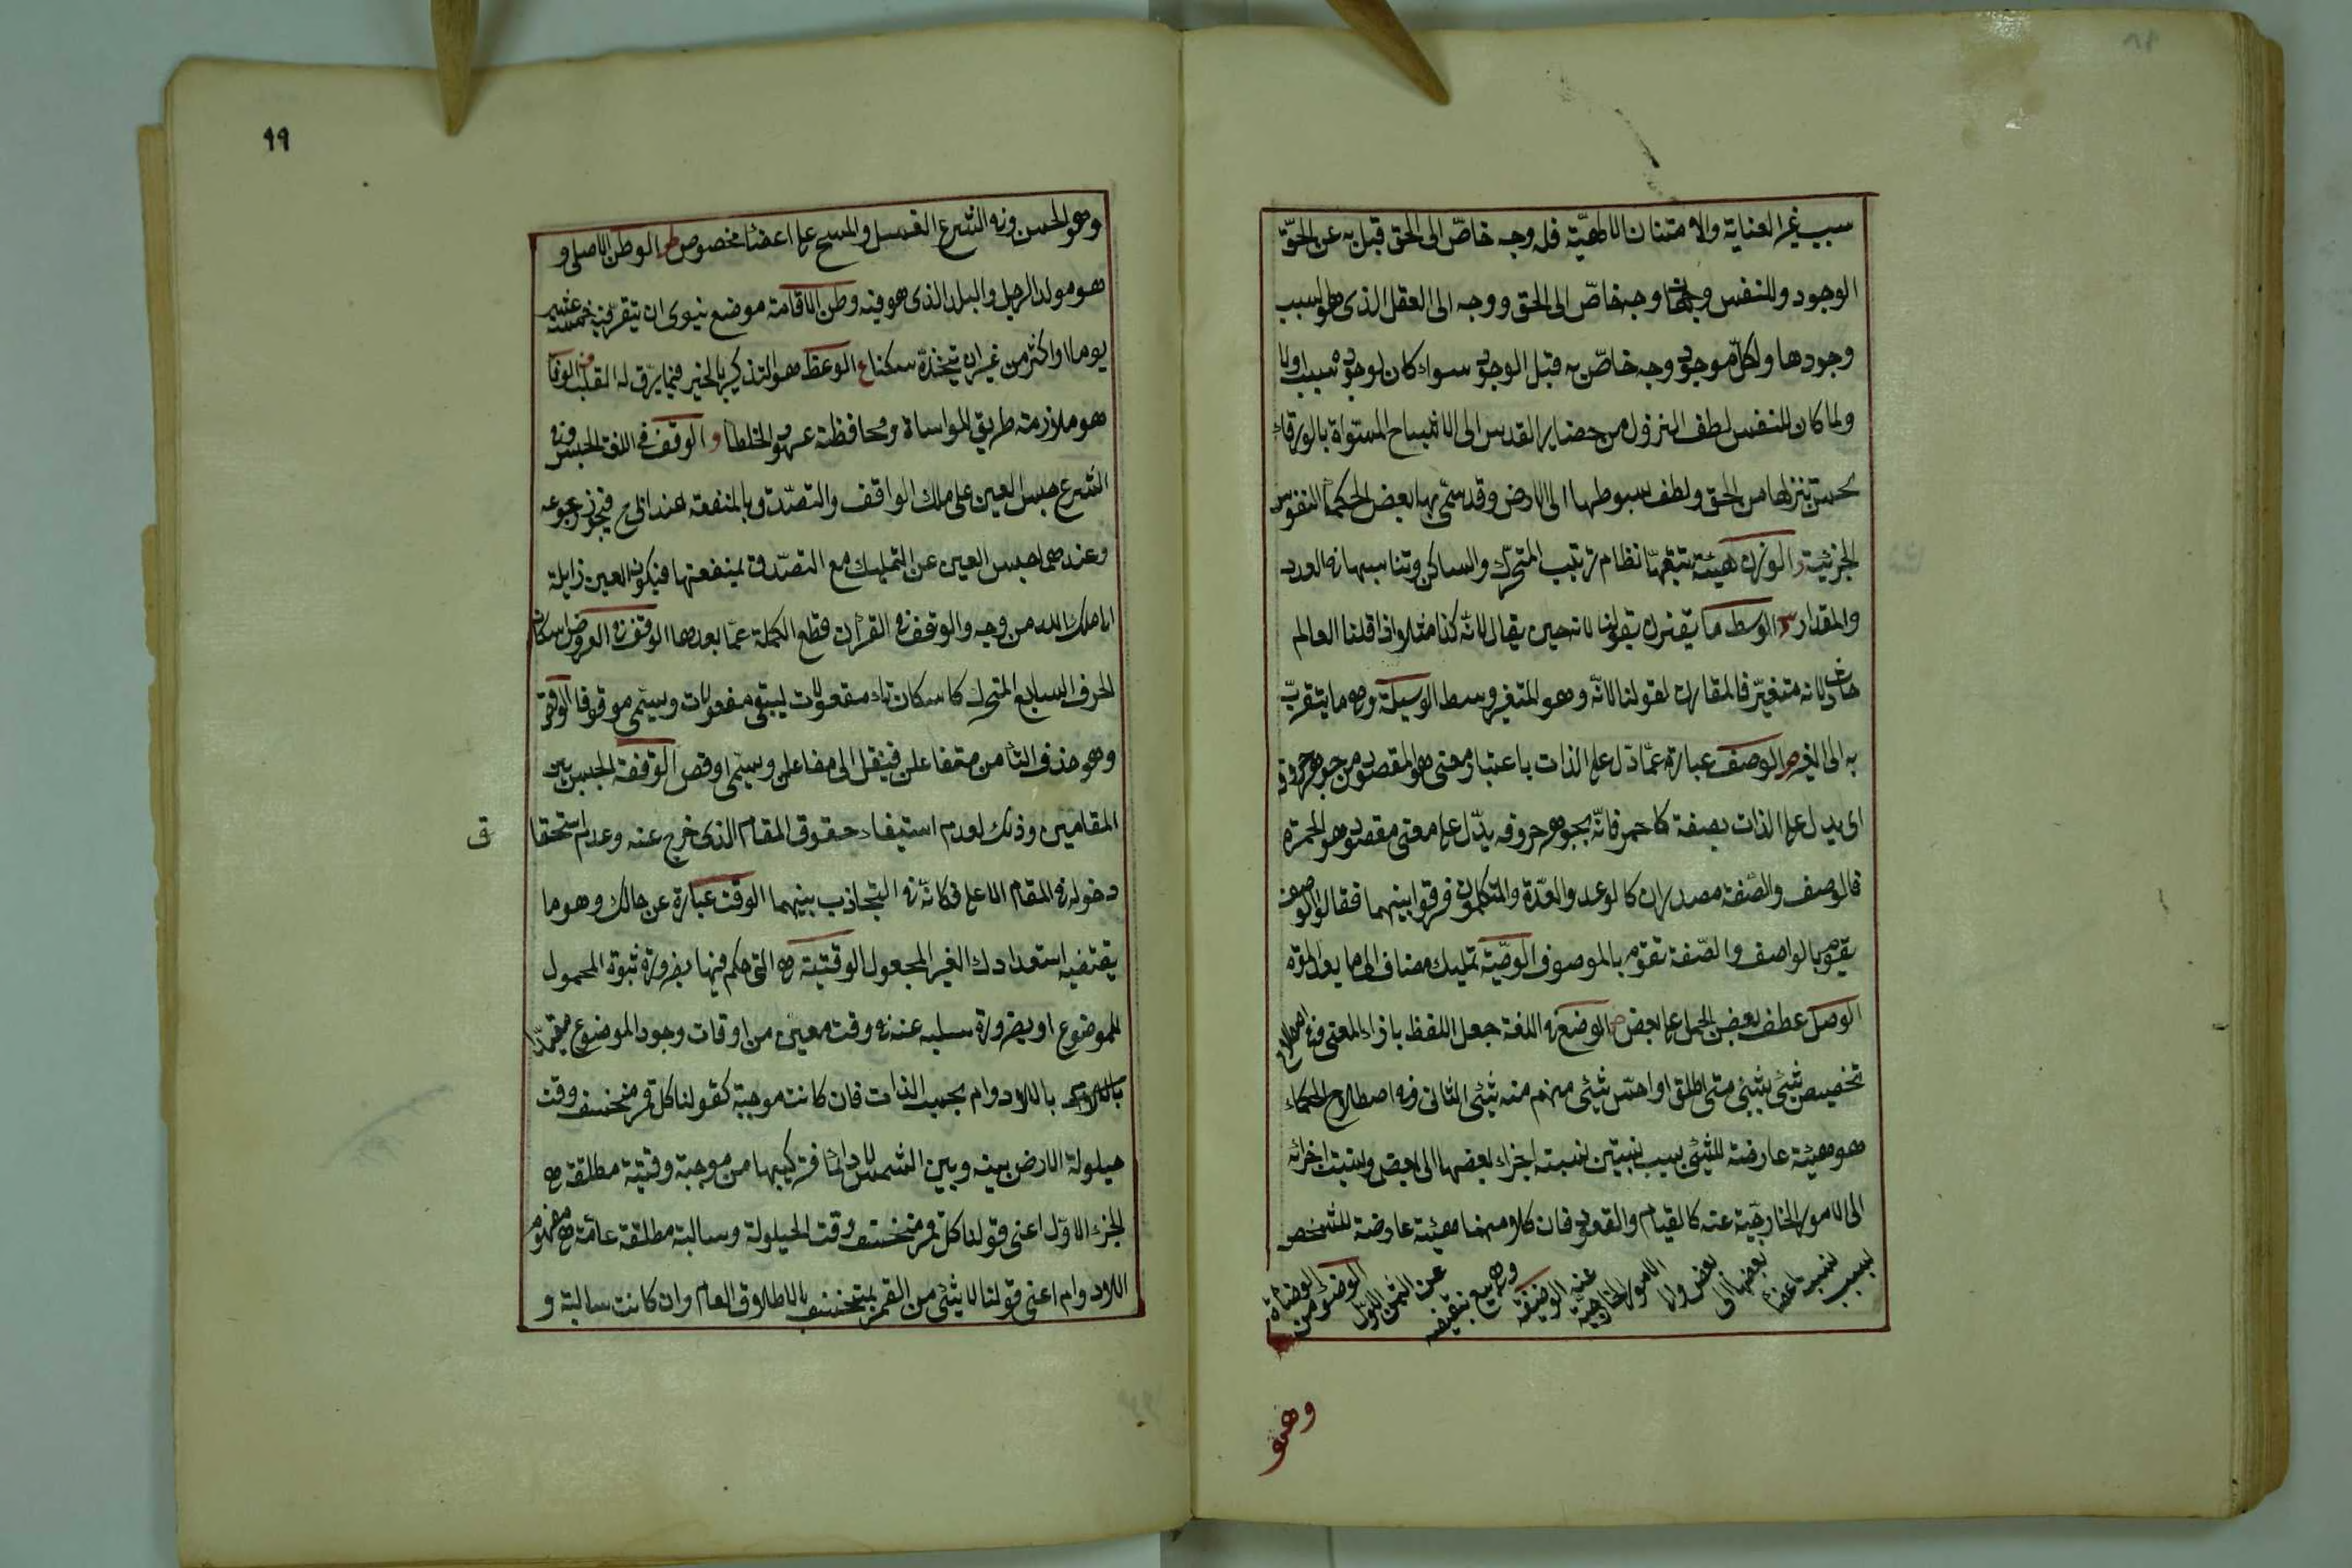 سبب غير العناية والامتنان الالهيّة فله وجه خاصّ الى الحق قبل به عن الحقّ
الوجود وللنفس وجهان وجه خاصّ الى الحق ووجه الى العقل الذى هو سبب
وجودها ولكلّ موجود وجه خاصّ به قبل الوجود سواء كان لوجوده سبب اولا
ولما كان للنفس لطف النزول من حضاير القدس الى الاشباح المستواة بالورقاء
لحسن تنزلها من الحق ولطف سبوطها الى الارض وقد سمّى بها بعض الحكماء النفوس
الجزئية ز الوزن هيئة تتبعها نظام ترتيب المتحرك والساكن وتناسبها فى العدد
والمقدار س الوسط ما يقترن بقولنا لانه حين يقال لانّه كذا مثلا اذا قلنا العالم
حادث لانه متغيّر فالمقارن لقولنا لانّه وهو المتغير وسط الوسيلة وهى ما يتقرب
به الى الغير ص الوصف عبارة عمّا دل على الذات باعتبار معنى هو المقصود من جوهر حروف
اى يدل على الذات بصفة كاحمر فانّه بجوهر حروفه يدّل على معنى مقصود وهو الحمرة
فالوصف والصّفة مصدران كالوعد والعدّة والمتكلمون فرقوا بينهما فقالوا الوصف
يقوم بالواصف والصّفة تقوم بالموصوف الوصيّة تمليك مضاف الى ما بعد الموت
الوصل عطف بعض الجمل على بعض ض الوضع فى اللغة جعل اللفظ بازاء المعنى وفى الاصطلاح
تخصيص شيئ بشيئ متى اطلق او احسّ شيئى منهم منه شيئى الثانى وفى اصطلاح الحكماء
هو هيئة عارضة للشيئ بسبب نسبتين نسبة اجزاء بعضها الى بعض ونسبة اجزائه
الى الامور الخارجية عنه كالقيام والقعود فان كلا منهما هيئة عارضة للشخص
بسبب نسبت اعضا بعضها الى بعض والى الامور الخارجيّة عنه الوضيعة وهى بيع بنقيصة عن الثمن الاول الوضوء من الوضاءة
وهو
٩٩
وهو الحسن وفى الشرع الغسل والمسح على اعضاء مخصوص ط الوطن الاصلى و
هو مولد الرجل والبلد الذى هو فيه وطن الاقامة موضع ينوى ان يتقرّ فيه خمسة عشر
يوما او اكثر من غير ان يتخذّه سكنا ع الوعظ هو التذكير بالخير فيما يرّق له القلب ف الوفا
هو ملازمة طريق المواساة ومحافظة عهود الخلطا و الوقف فى اللغة الحبس وفى
الشرع حبس العين على ملك الواقف والتصّدق بالمنفعة عند ابى ح فيجوز رجوعه
وعندهما حبس العين عن التمليك مع التصّدق بمنفعتها فيكون العين زايلة
الى ملك الله من وجه والوقف فى القرآن قطع الكلمة عمّا بعدها الوقف فى العروض اسكان
الحرف السابع المتحرك كاسكان تاء مفعولات ليبقى مفعولات ويسمّى موقوفا الوقص
وهو حذف الثا من متفاعلن فينقل الى مفاعلن ويسمّى اوقص الوقفة الحبس بين
المقامين وذلك لعدم استيفاء حقوق المقام الذى خرج عنه وعدم استحقا
ق
دخوله فى المقام الاعلى فكانّه فى التجاذب بينهما الوقت عبارة عن حالك وهو ما
يقتضيه استعدادك الغير المجعول الوقتية هى التى حكم فيها بضرورة ثبوة المحمول
للموضوع او بضرورة سلبه عنه فى وقت معيّن من اوقات وجود الموضوع مقيّدا
باللادوام بحسب الذات فان كانت موجبة كقولنا كل قمر منخسف وقت
حيلولة الارض بينه وبين الشمس لا دائما فتركيبها من موجبة وقتية مطلقة هى
الجزء الاوّل اعنى قولنا كل قمر منخسف وقت الحيلولة وسالبة مطلقة عامّة هى مفهوم
اللادوام اعنى قولنا لا شيئ من القمر بمنخسف بالاطلاق العام وان كانت سالبة و